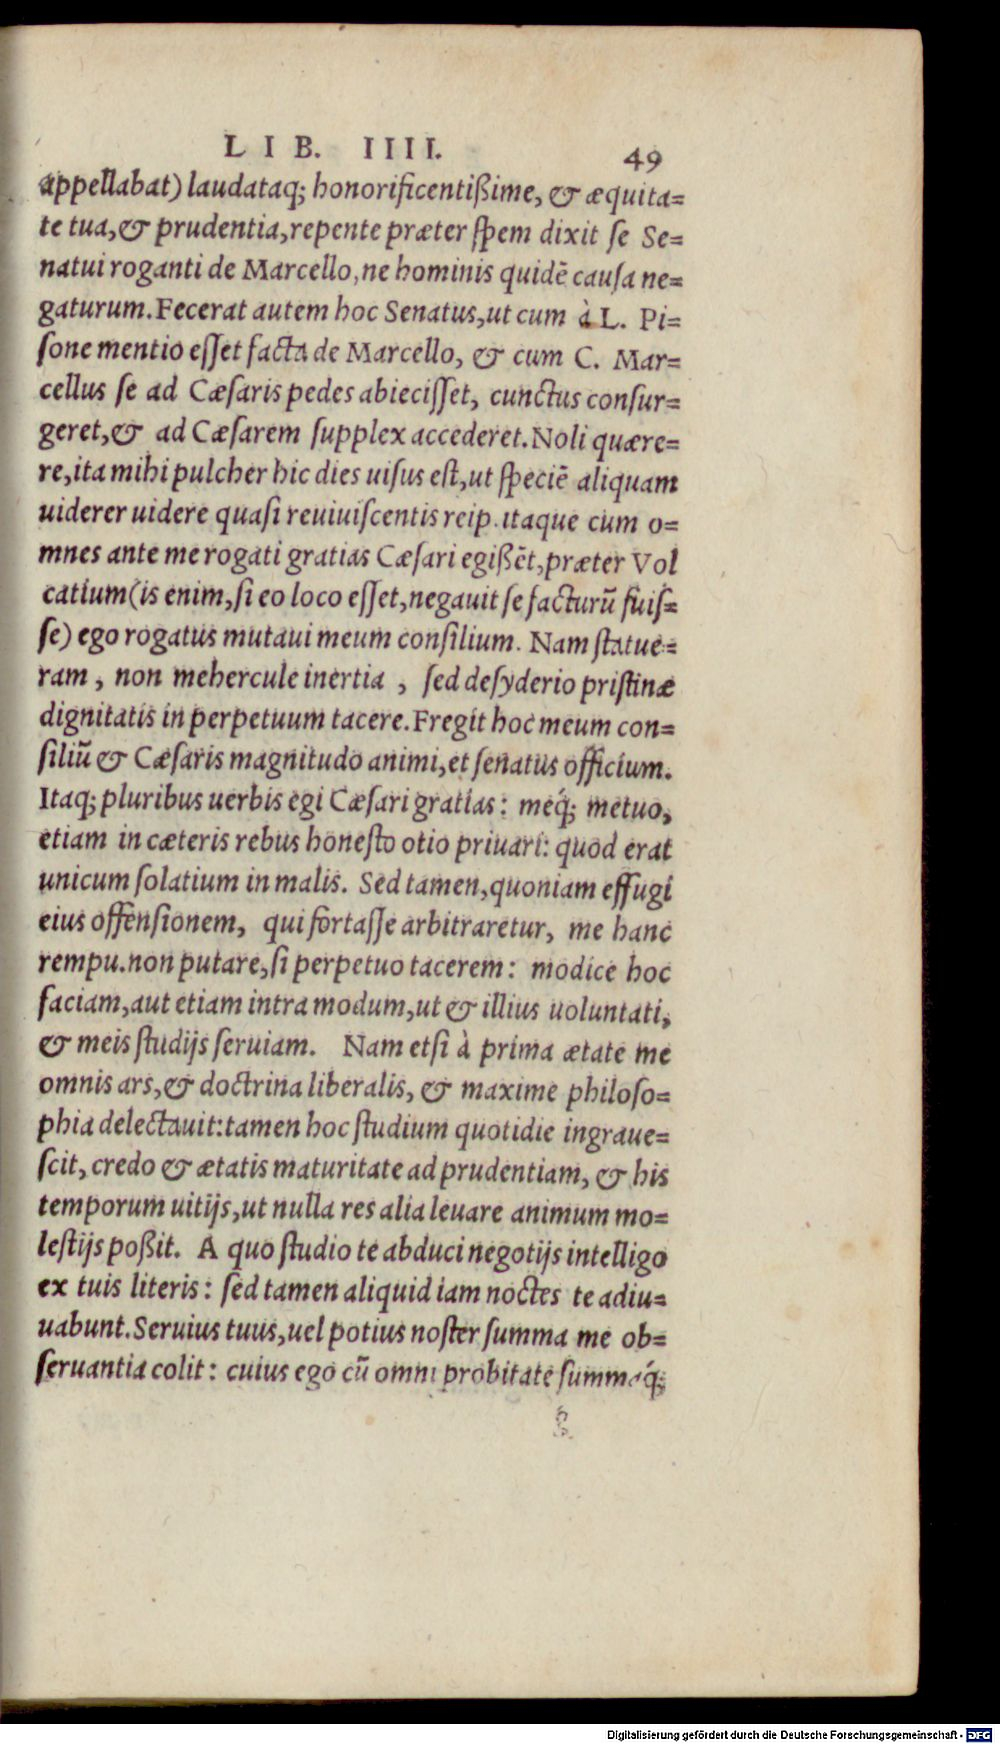 LIB. IIII. 49
appellabat) laudataq; honorificentißime, & æquita=
te tua, & prudentia, repente præter ſpem dixit ſe Se=
natui roganti de Marcello, ne hominis quidē cauſa ne=
gaturum. Fecerat autem hoc Senatus, ut cum à L. Pi=
ſone mentio eſſet facta de Marcello, & cum C. Mar=
cellus ſe ad Cæſaris pedes abieciſſet, cunctus conſur=
geret, & ad Cæſarem ſupplex accederet. Noli quære=
re, ita mihi pulcher hic dies uiſus eſt, ut ſpeciē aliquam
uiderer uidere quaſi reuiuiſcentis reip. itaque cum o=
mnes ante me rogati gratias Cæſari egißēt, præter Vol
catium (is enim, ſi eo loco eſſet, negauit ſe facturū fuiſ=
ſe) ego rogatus mutaui meum conſilium. Nam ſtatue=
ram, non mehercule inertia, ſed deſyderio priſtinæ
dignitatis in perpetuum tacere. Fregit hoc meum con=
ſiliū & Cæſaris magnitudo animi, et ſenatus officium.
Itaq; pluribus uerbis egi Cæſari gratias: meq́; metuo,
etiam in cæteris rebus honeſto otio priuari: quod erat
unicum ſolatium in malis. Sed tamen, quoniam effugi
eius offenſionem, qui fortaſſe arbitraretur, me hanc
rempu. non putare, ſi perpetuo tacerem: modice hoc
faciam, aut etiam intra modum, ut & illius uoluntati,
& meis ſtudijs ſeruiam. Nam etſi à prima ætate me
omnis ars, & doctrina liberalis, & maxime philoſo=
phia delectauit: tamen hoc ſtudium quotidie ingraue=
ſcit, credo & ætatis maturitate ad prudentiam, & his
temporum uitijs, ut nulla res alia leuare animum mo=
leſtijs poßit. A quo ſtudio te abduci negotijs intelligo
ex tuis literis: ſed tamen aliquid iam noctes te adiu=
uabunt. Seruius tuus, uel potius noſter ſumma me ob=
ſeruantia colit: cuius ego cū omni probitate ſummaq́;
Digitalisierung gefördert durch die Deutsche Forschungsgemeinschaft - DFG